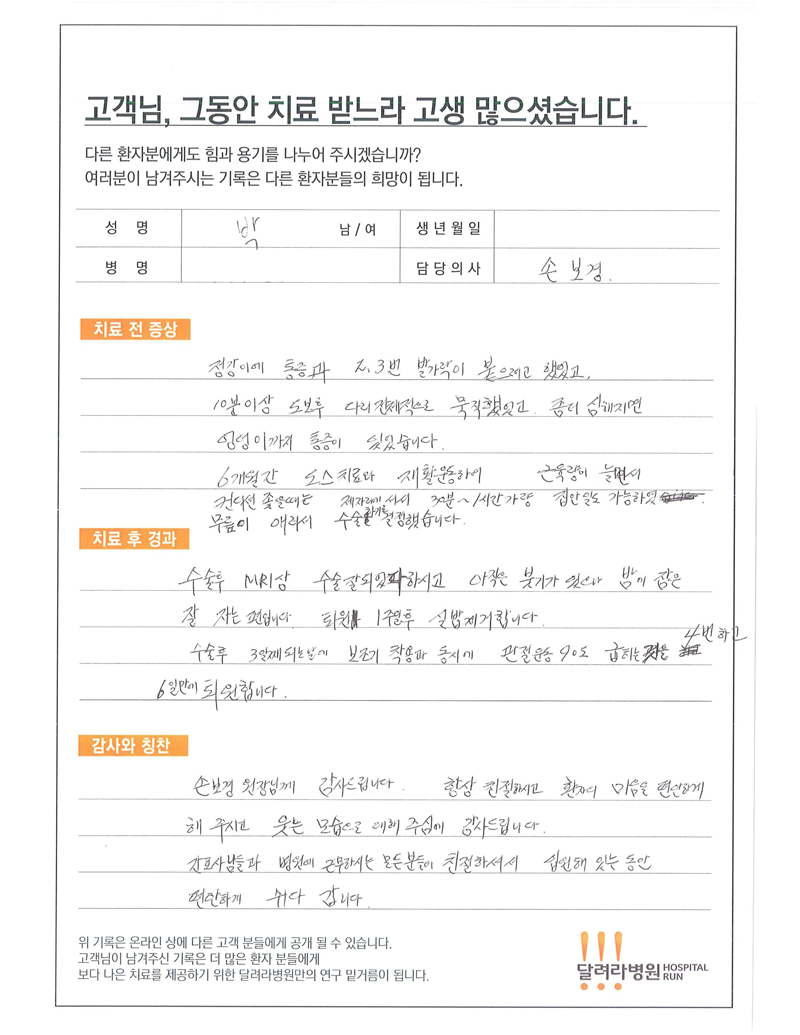 고객님, 그동안 치료 받느라 고생 많으셨습니다.
다른 환자분에게도 힘과 용기를 나누어 주시겠습니까?
여러분이 남겨주시는 기록은 다른 환자분들의 희망이 됩니다.
성 명 박 남 / 여 생년월일
병 명 담당의사 손보경.
치료 전 증상
정강이에 통증과 2, 3번 발가락이 붙으려고 했었고,
10분이상 도보후 다리 전체적으로 묵직했었고. 좀더 심해지면
엉덩이까지 통증이 있었습니다.
6개월간 도스치료와 재활운동하며 근육량이 늘면서
컨디션 좋을때는 제자리에 서서 30분~1시간가량 집안일도 가능하였
무릎이 애라서 수술을 하기를 결정했습니다.
치료 후 경과
수술후 MRI상 수술 잘되었다하시고 아직은 붓기가 있으나 밤에 잠은
잘 자는 편입니다. 퇴원 1주일후 실밥제거합니다.
수술후 3일째되는날에 보조기 착용과 동시에 관절운동 90도 굽히는 4번하고
6일만에 퇴원합니다.
감사와 칭찬
손보경 원장님께 감사드립니다. 항상 친절하시고 환자의 마음을 편안하게
해 주시고 웃는 모습으로 대해 주심에 감사드립니다.
간호사님들과 병원에 근무하시는 모든분들이 친절하셔서 입원해 있는 동안
편안하게 쉬다 갑니다.
위 기록은 온라인 상에 다른 고객 분들에게 공개 될 수 있습니다.
고객님이 남겨주신 기록은 더 많은 환자 분들에게
보다 나은 치료를 제공하기 위한 달려라병원만의 연구 밑거름이 됩니다.
달려라병원 HOSPITAL RUN